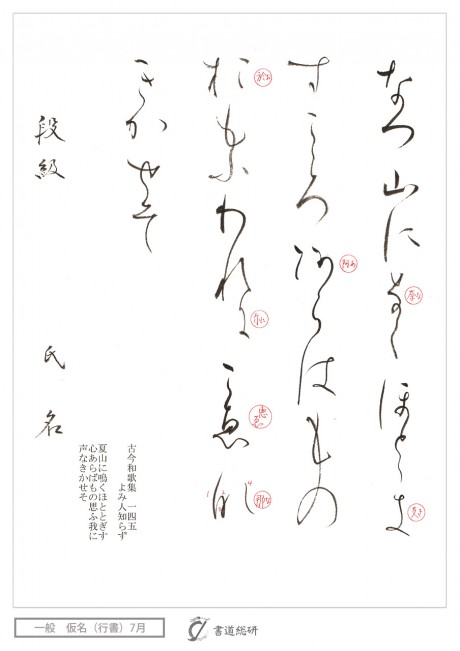 なつ山になくほとゝき
すこゝろあらはもの
おもふわれにこゑな
きかせそ
段級　氏名
古今和歌集　一四五
よみ人知らず
夏山に鳴くほととぎす
心あらばもの思ふ我に
声なきかせそ
一般　仮名（行書）7月
書道総研